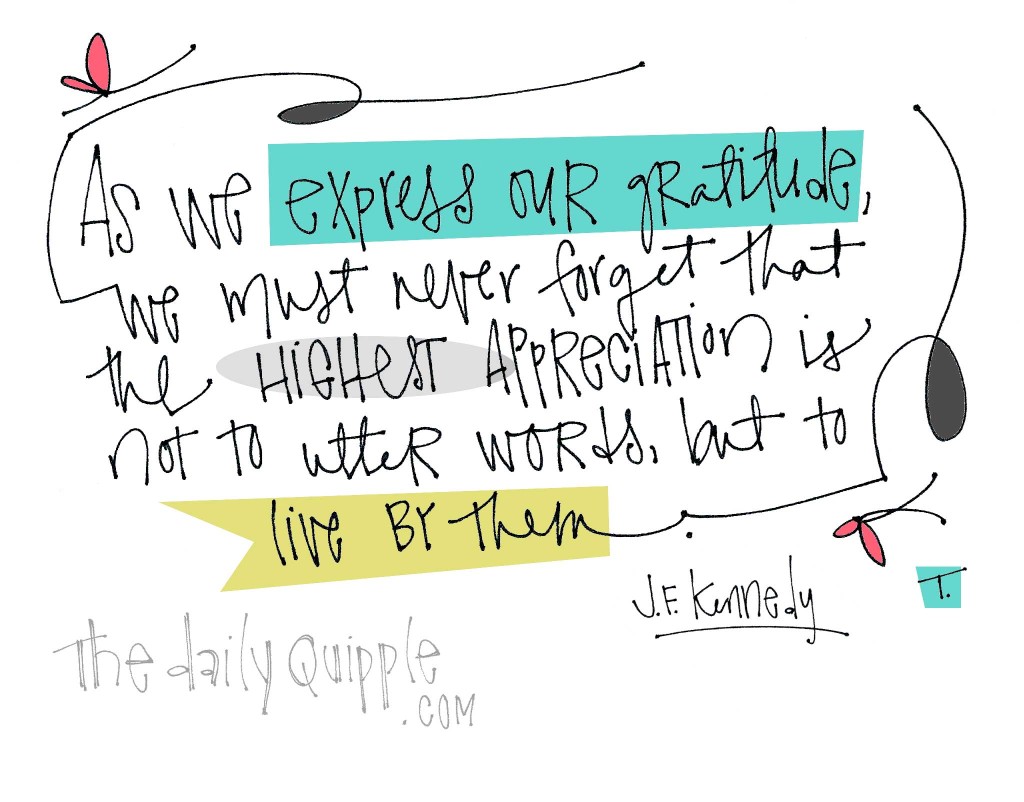 As we express our gratitude,
we must never forget that
the HiGHeST APPReciATion is
not to utter words, but to
live BY them.
J.F. Kennedy
T.
The daily Quipple
.COM